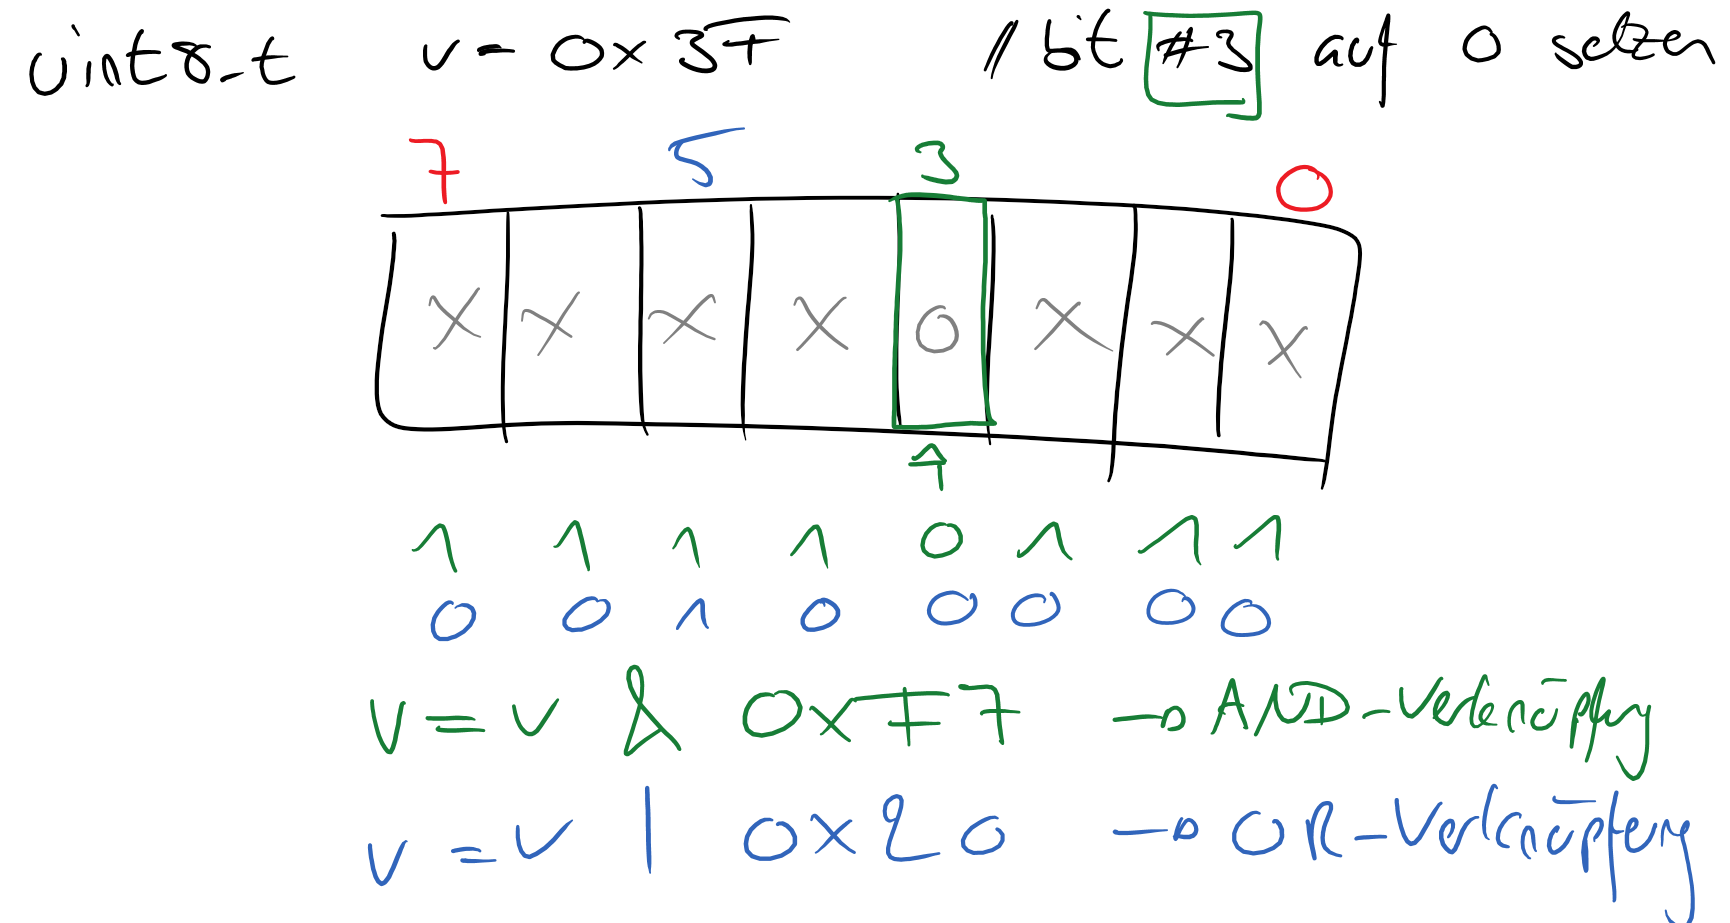 uint8_t v = 0x3F // bit #3 auf 0 setzen
7 5 3 0
X X X X 0 X X X
1 1 1 1 0 1 1 1
0 0 1 0 0 0 0 0
v = v & 0xF7 → AND-Verknüpfung
v = v | 0x20 → OR-Verknüpfung